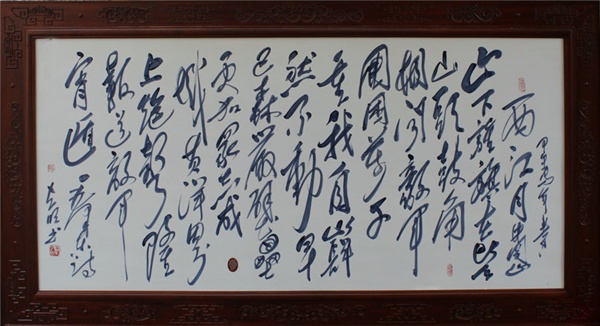 西江月 井冈山
山下旌旗在望
山头鼓角
相闻敌军
围困万千
重我自巋
然不動早
已森严壁壘
更加众志成
城黄洋界
上炮声隆
报道敌军
宵遁